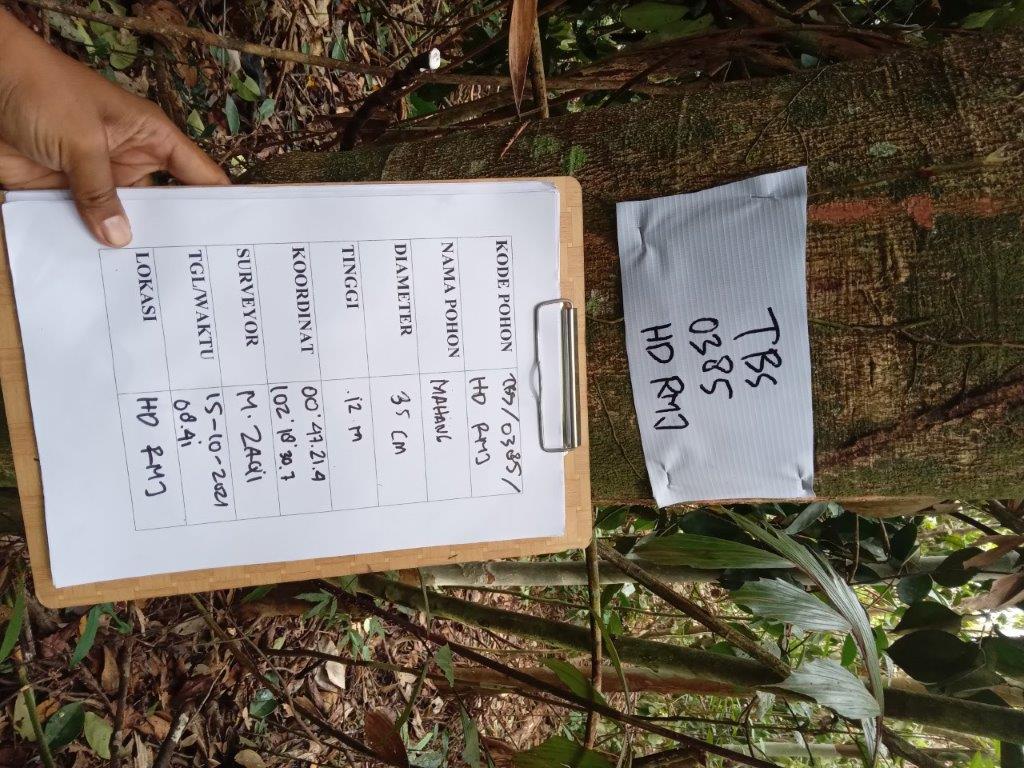 TBS
0385
HD RMJ
KODE POHON TBS/0385/
HD RMJ
NAMA POHON MAHANG
DIAMETER 35 CM
TINGGI 12 M
KOORDINAT 00°.47.21.4
102° 18' 30.7
SURVEYOR M. ZAQI
TGL/WAKTU 15-10-2021
08.41
LOKASI HD RMJ